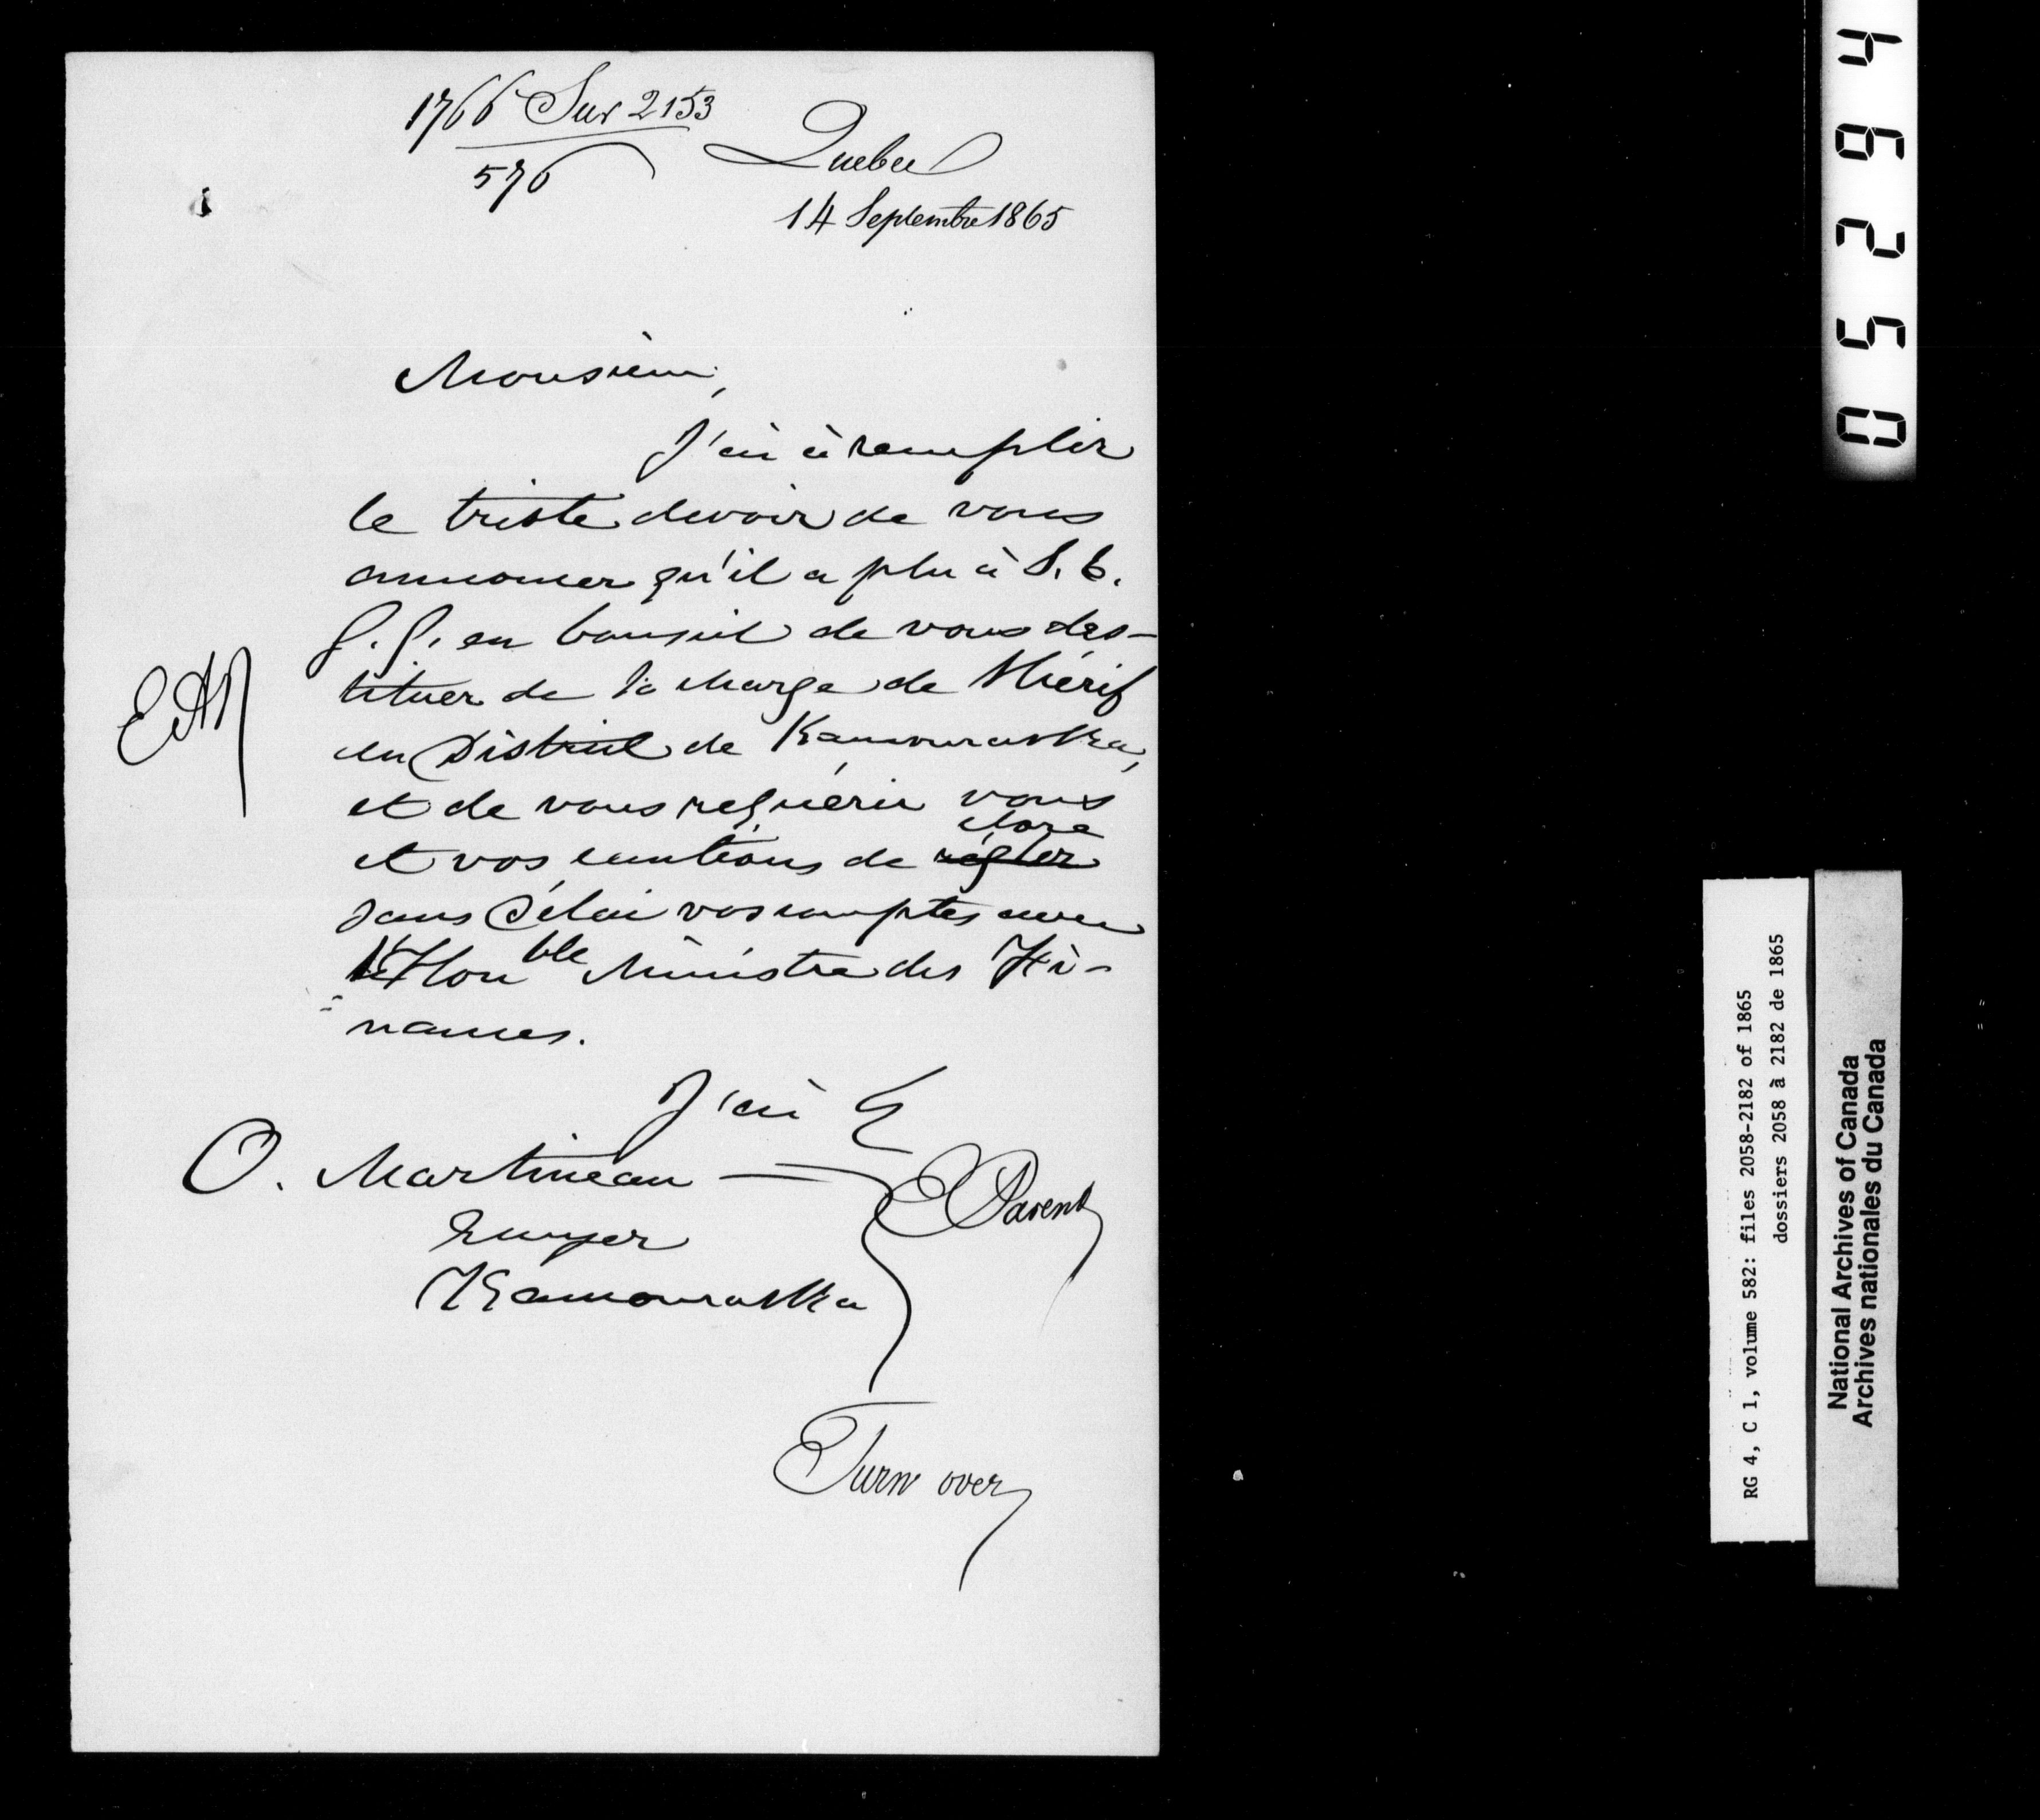 1766 Sur 2153
576
Quebec
14 Septembre 1865
Monsieur,
J'ai à remplir
le triste devoir de vous
annoncer qu'il a plu à S. E.
G. G. en Conseil de vous des-
tituer de la charge de Shérif
du District de Kamouraska,
et de vous requérir vous
clore
et vos cautions de régler
sans délai vos comptes avec
l'Honble Ministre des Fi-
nances.
J'ai &
O. Martineau
E Parent
Kamouraska
Turn over
46250
RG 4, C 1, volume 582: files 2058-2182 of 1865
dossiers 2058 à 2182 de 1865
National Archives of Canada
Archives nationales du Canada